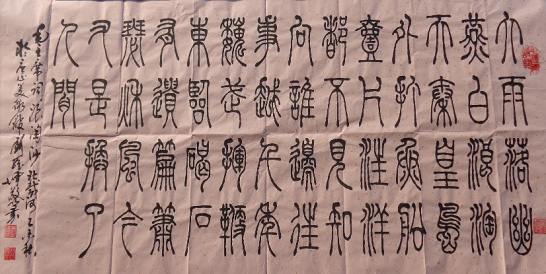 大雨落幽
燕白浪滔
天秦皇島
外打魚船
壹片汪洋
都不見知
向誰邊往
事越千年
魏武揮鞭
東臨碣石
有遺篇蕭
瑟秋風今
又是換了
人間
毛主席词浪淘沙北戴河
美術館